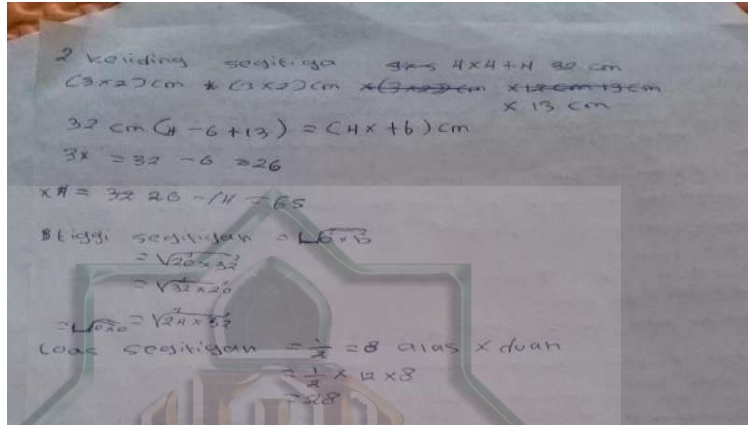 2 keliding segitiga 4x4+4 32 cm
(3x2) cm * (3x2) cm x 12 cm 13 cm
x 13 cm
32 cm (4 - 6 + 13) = (4x + 6) cm
3x = 32 - 6 = 26
= 32 26 - 14 = 65
tiggi segitigan = √6x13
= √20² x 32²
= √32² x 20²
= √24² x 32²
Loas segitigan = 1/2 = 8 alas x duan
= 1/2 x 12 x 8
= 28